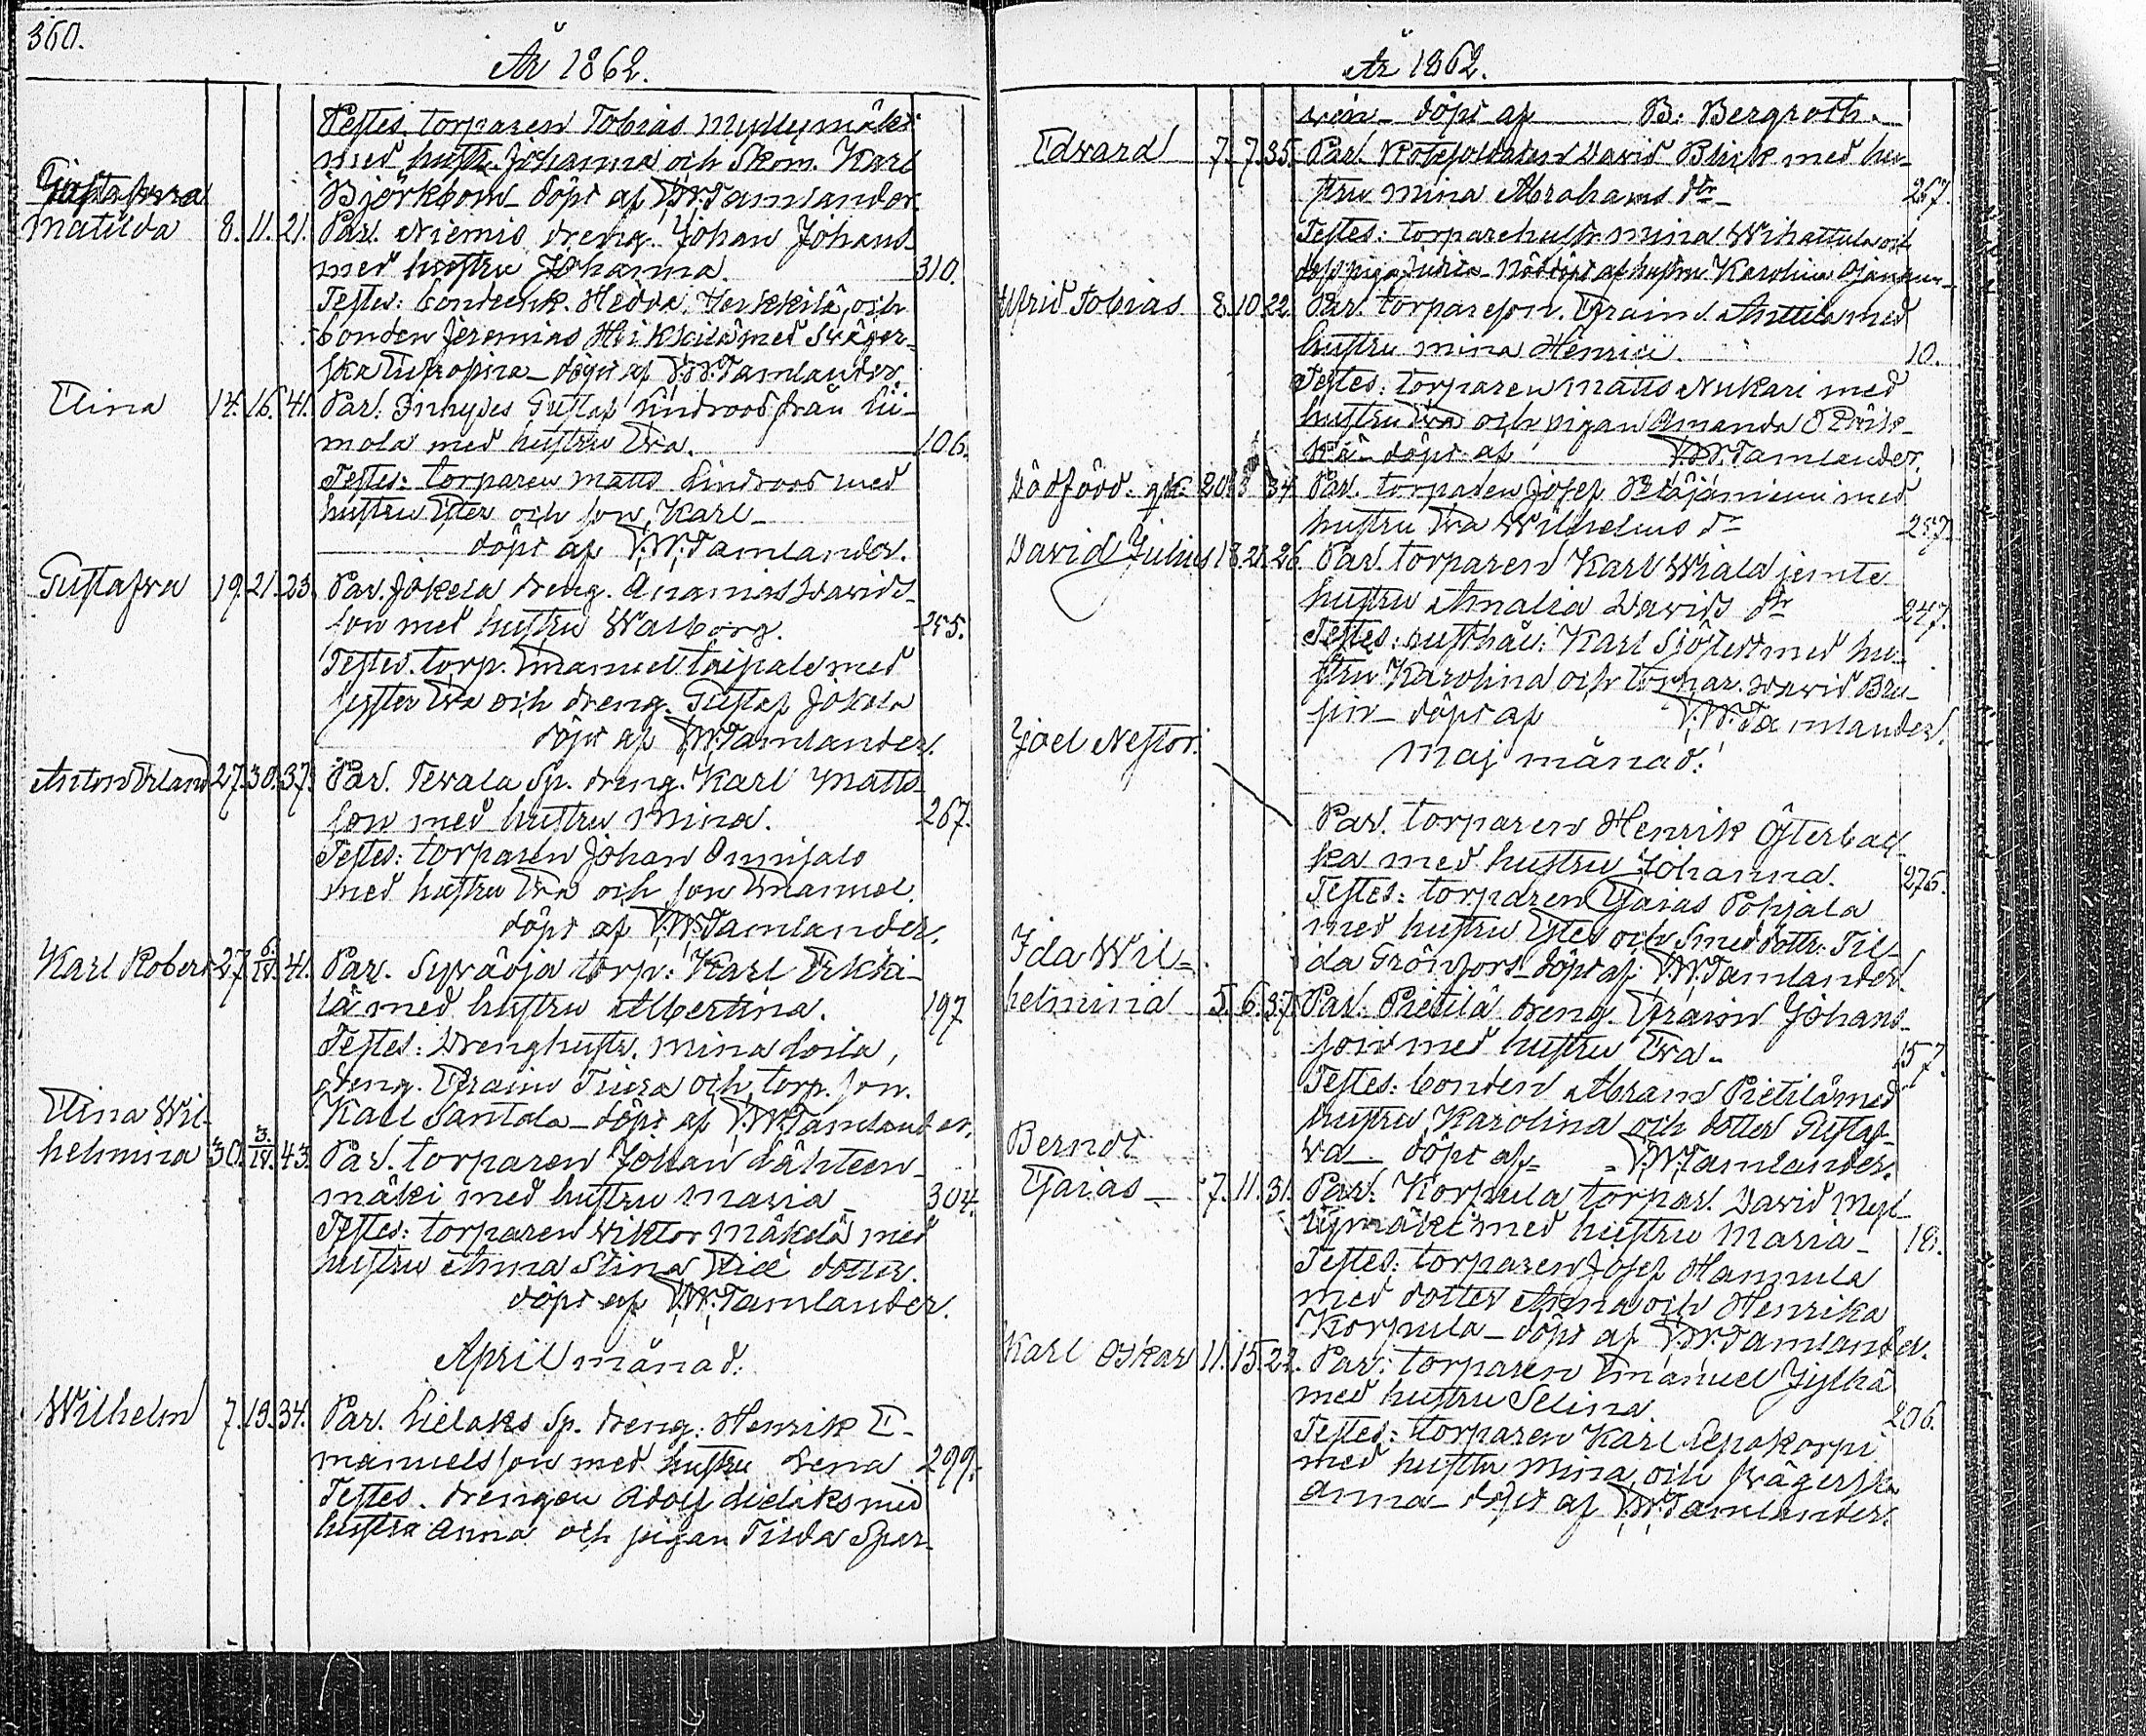 360.
År 1862.
Testes torparen Tobias Myllymäki
med hustr. Johanna och Skom. Karl
Björkbom döpt af V.W. Tamlander.
Gustafva
Matilda 8. 11. 21. Par. Niemis dreng. Johan Johans
med hustru Johanna 310.
Testes: bondeenk. Hedda Heikkilä, och
bonden Jeremias Heikkilä med Sväger-
ska Eufrosina döpt af V.W. Tamlander.
Elina 14. 16. 41. Par. Inhyses Gustaf Lindroos från Lii-
mola med hustru Eva. 106.
Testes: torparen Matts Lindroos med
hustru Ester och son Karl
döpt af V.W. Tamlander.
Gustafva 19. 21. 23. Par. Jokela dreng. Ananias Davids-
son med hustru Walborg. 255.
Testes. torp. Emanuel Taipale med
syster Eva och dreng. Gustaf Jokela
döpt af V.W. Tamlander.
Anton Erland 27. 30. 37. Par. Tevala Sp. dreng. Karl Matts-
son med hustru Mina. 267.
Testes: torparen Johan
med hustru Eva och son Emanuel.
döpt af V.W. Tamlander.
Karl Robert 27. 6/IV. 41. Par. Syväoja torp. Karl Erkki-
lä med hustru Albertina. 197
Testes: Drenghustr. Mina Loila,
dreng. Efraim och torp. son.
Karl Santala döpt af V.W. Tamlander.
Elina Wil-
helmina 30. 3/IV. 43. Par. torparen Johan Lähteen-
mäki med hustru Maria 304.
Testes: torparen Viktor Mäkelä med
hustru Anna Stina dotter.
döpt af V.W. Tamlander.
April månad.
Wilhelm 7. 13. 34. Par. Lielaks Sp. dreng. Henrik E-
manuelsson med hustru Lena 299.
Testes. drengen Adolf Lielaks med
hustru Anna och pigan Tilda Spar-
År 1862.
vin döpt af B. Bergroth.
Edvard 7. 7. 35. Par. Rotesoldaten David Blick med hu-
stru Mina Abrahams dtr 267.
Testes: torparehustr. Mina Wihattula och
piga Nöddöpt af hustru Karolina
Tobias 8. 10. 22. Par. torpareson. Efraim Anttila med
hustru Mina Henrici. 10.
Testes: torparen Matts Nukari med
hustru Eva och pigan Amanda
kä döpt af V.W. Tamlander.
Dödfödd. 20. 34 Par. torparen Josef med
hustru Eva Wilhelms dr 257.
David Julius 18. 21. 26. Par. torparen Karl Wiala jemte
hustru Amalia Davids dtr 247.
Testes: Karl Sjöstedt med hu-
stru Karolina och torpar. David Bru-
sin döpt af V.W. Tamlander.
Joel Nestor.
Maj månad.
Par. torparen Henrik Österbac-
ka med hustru Johanna. 276.
Testes: torparen Esaias Pohjala
med hustru Ester och Smed dottr. Til-
da Grönfors döpt af V.W. Tamlander.
Ida Wil-
helmina 5. 6. 37. Par. Pietilä dreng Efraim Johans-
son med hustru Eva. 157.
Testes: bonden Abram Pietilä med
hustru Karolina och dotter Gustaf-
va döpt af V.W. Tamlander.
Berndt
Esaias 7. 11. 31. Par. Korpula torpar. David Myl-
lymäki med hustru Maria
Testes: torparen Josef Hannula
med dotter Anna och Henrika
Korpula döpt af V.W. Tamlander.
Karl Oskar 11. 15. 22. Par. torparen Emanuel Jylhä
med hustru Selina. 206.
Testes: torparen Karl Lepokorpi
med hustru Mina och Svägerska
Anna döpt af V.W. Tamlander.